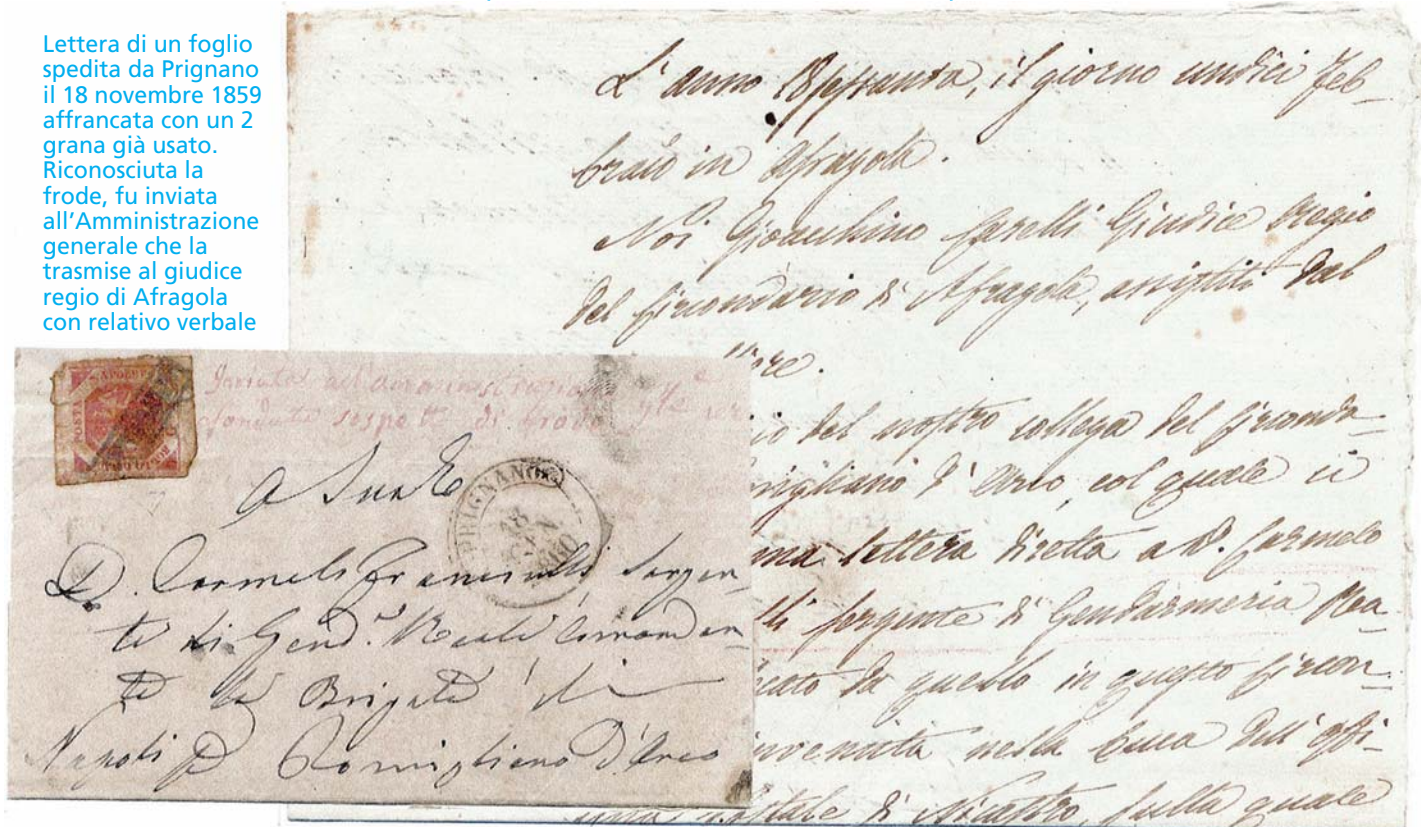 Lettera di un foglio
spedita da Prignano
il 18 novembre 1859
affrancata con un 2
grana già usato.
Riconosciuta la
frode, fu inviata
all'Amministrazione
generale che la
trasmise al giudice
regio di Afragola
con relativo verbale
L'anno 18sessanta, il giorno undici Feb-
braio in Afragola.
Noi Gioacchino Giudice Regio
del Circondario di Afragola, assistiti dal
del nostro collega del Circonda-
d'Arco, col quale ci
lettera diretta a D. Carmelo
Sergente di Gendarmeria Rea-
da quello in questo Circon-
nella buca dell'offi-
di Nicastro, sulla quale
POSTA
Inviata all'amministrazione
di frode
A Sua E
PRIGNANO
18
D. Carmelo Sergen-
te di Gend. Reale Comandan-
te la Brigata di
Napoli p Pomigliano d'Arco